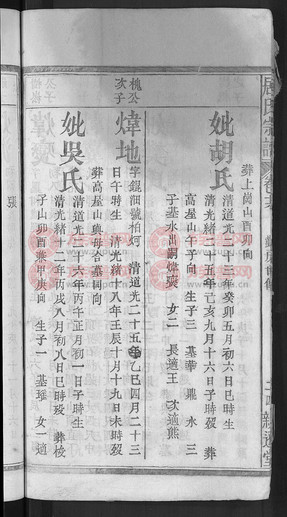 葬上崗山酉卯向
妣胡氏
清道光二十三年癸卯五月初六日巳時生
清光緒二十五年己亥九月十六日子時歿 葬
高屋山午子向 生子三 基華 鼎 水 三
子基水出嗣煒 女二 長適王 次適熊
槐公
次子
煒地
字錕 號柏 清道光二十五年乙巳四月二十三
日午時生 清光緒十八年壬辰十月十九日未時歿
葬高屋山與母合墓同向
妣吳氏
清道光二十六年丙午正月初一日子時生
清光緒十二年丙戌八月初八日巳時歿 葬
子山卯酉兼甲庚向 生子一 基 女一適
張